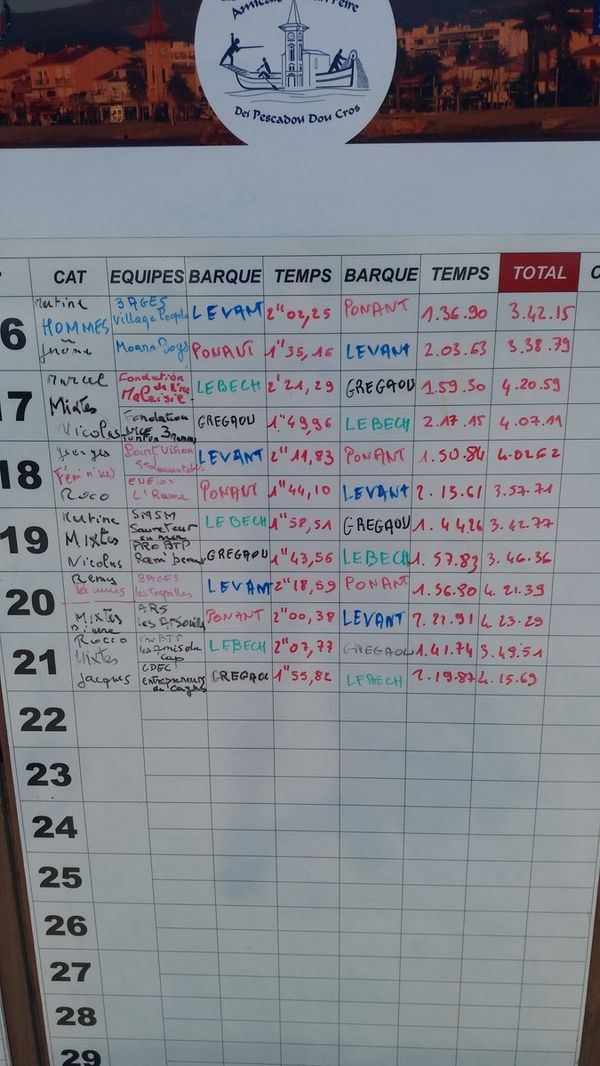 Dei Pescadou Dou Cros
CAT EQUIPES BARQUE TEMPS BARQUE TEMPS TOTAL
6 HOMMES 3 AGES Village People LEVANT 2"02,25 PONANT 1.36.90 3.42.15
Jérôme PONANT 1"35,16 LEVANT 2.03.63 3.38.79
17 Marcel Fondation de l'ice Malaisie LEBECH 2'21,29 GREGAOU 1.59.30 4.20.59
Mixtes Nicolas Fondation GREGAOU 1"49,96 LEBECH 2.17.15 4.07.11
18 Georges Féminines Point Vision LEVANT 2"11,83 PONANT 1.50.84 4.02.62
Roco L'Rame PONANT 1"44,10 LEVANT 2.13.61 3.57.71
19 Martine SNSM Sauveteur en mer LEBECH 1"58,51 GREGAOU 1.44.26 3.42.77
Mixte Nicolas PRO BTP GREGAOU 1"43,56 LEBECH 1.57.83 3.46.36
20 Remy 3AGES les Toquilles LEVANT 2"18,59 PONANT 1.56.80 4.21.39
Mixtes ARS les Arsouilles PONANT 2"00,38 LEVANT 2.22.91 4.23.29
21 Rocco Mixtes les Amis du Cap LEBECH 2"07,77 GREGAOU 1.41.74 3.49.51
Jacques CDEC entrepreneurs de Cagnes GREGAOU 1"55,82 LEBECH 2.19.87 4.15.69
22
23
24
25
26
27
28
29